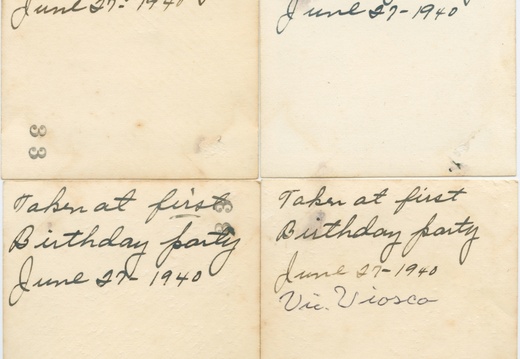 June 27- 1940
33
June 27- 1940
Taken at first
33
Birthday party
June 27- 1940
Taken at first
Birthday party
June 27- 1940
Vic. Viosca